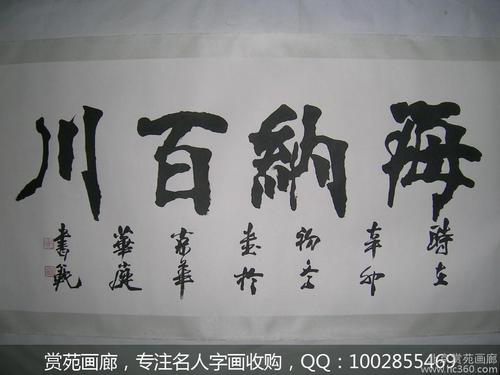 海納百川
時在
辛卯
初冬
書於
京華
華庭
赏苑画廊，专注名人字画收购，QQ：1002855469
赏苑画廊
www.hc360.com